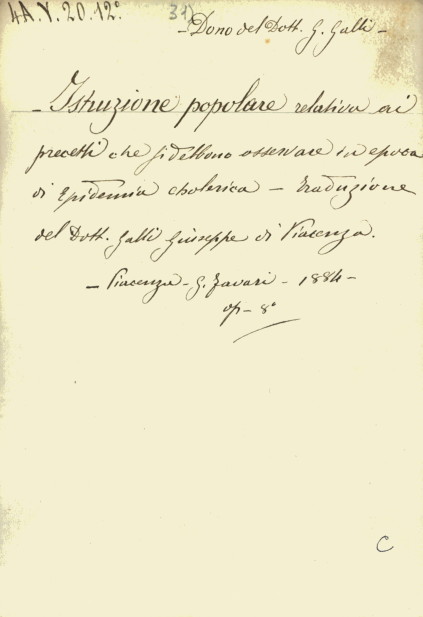 4A.V.20.12°
31)
- Dono del Dott. G. Galli -
- Istruzione popolare relativa ai
precetti che si debbono osservare in epoca
di Epidemia cholerica - traduzione
del Dott. Galli Giuseppe di Piacenza.
- Piacenza - G. Tavari - 1884 -
op - 8°
C